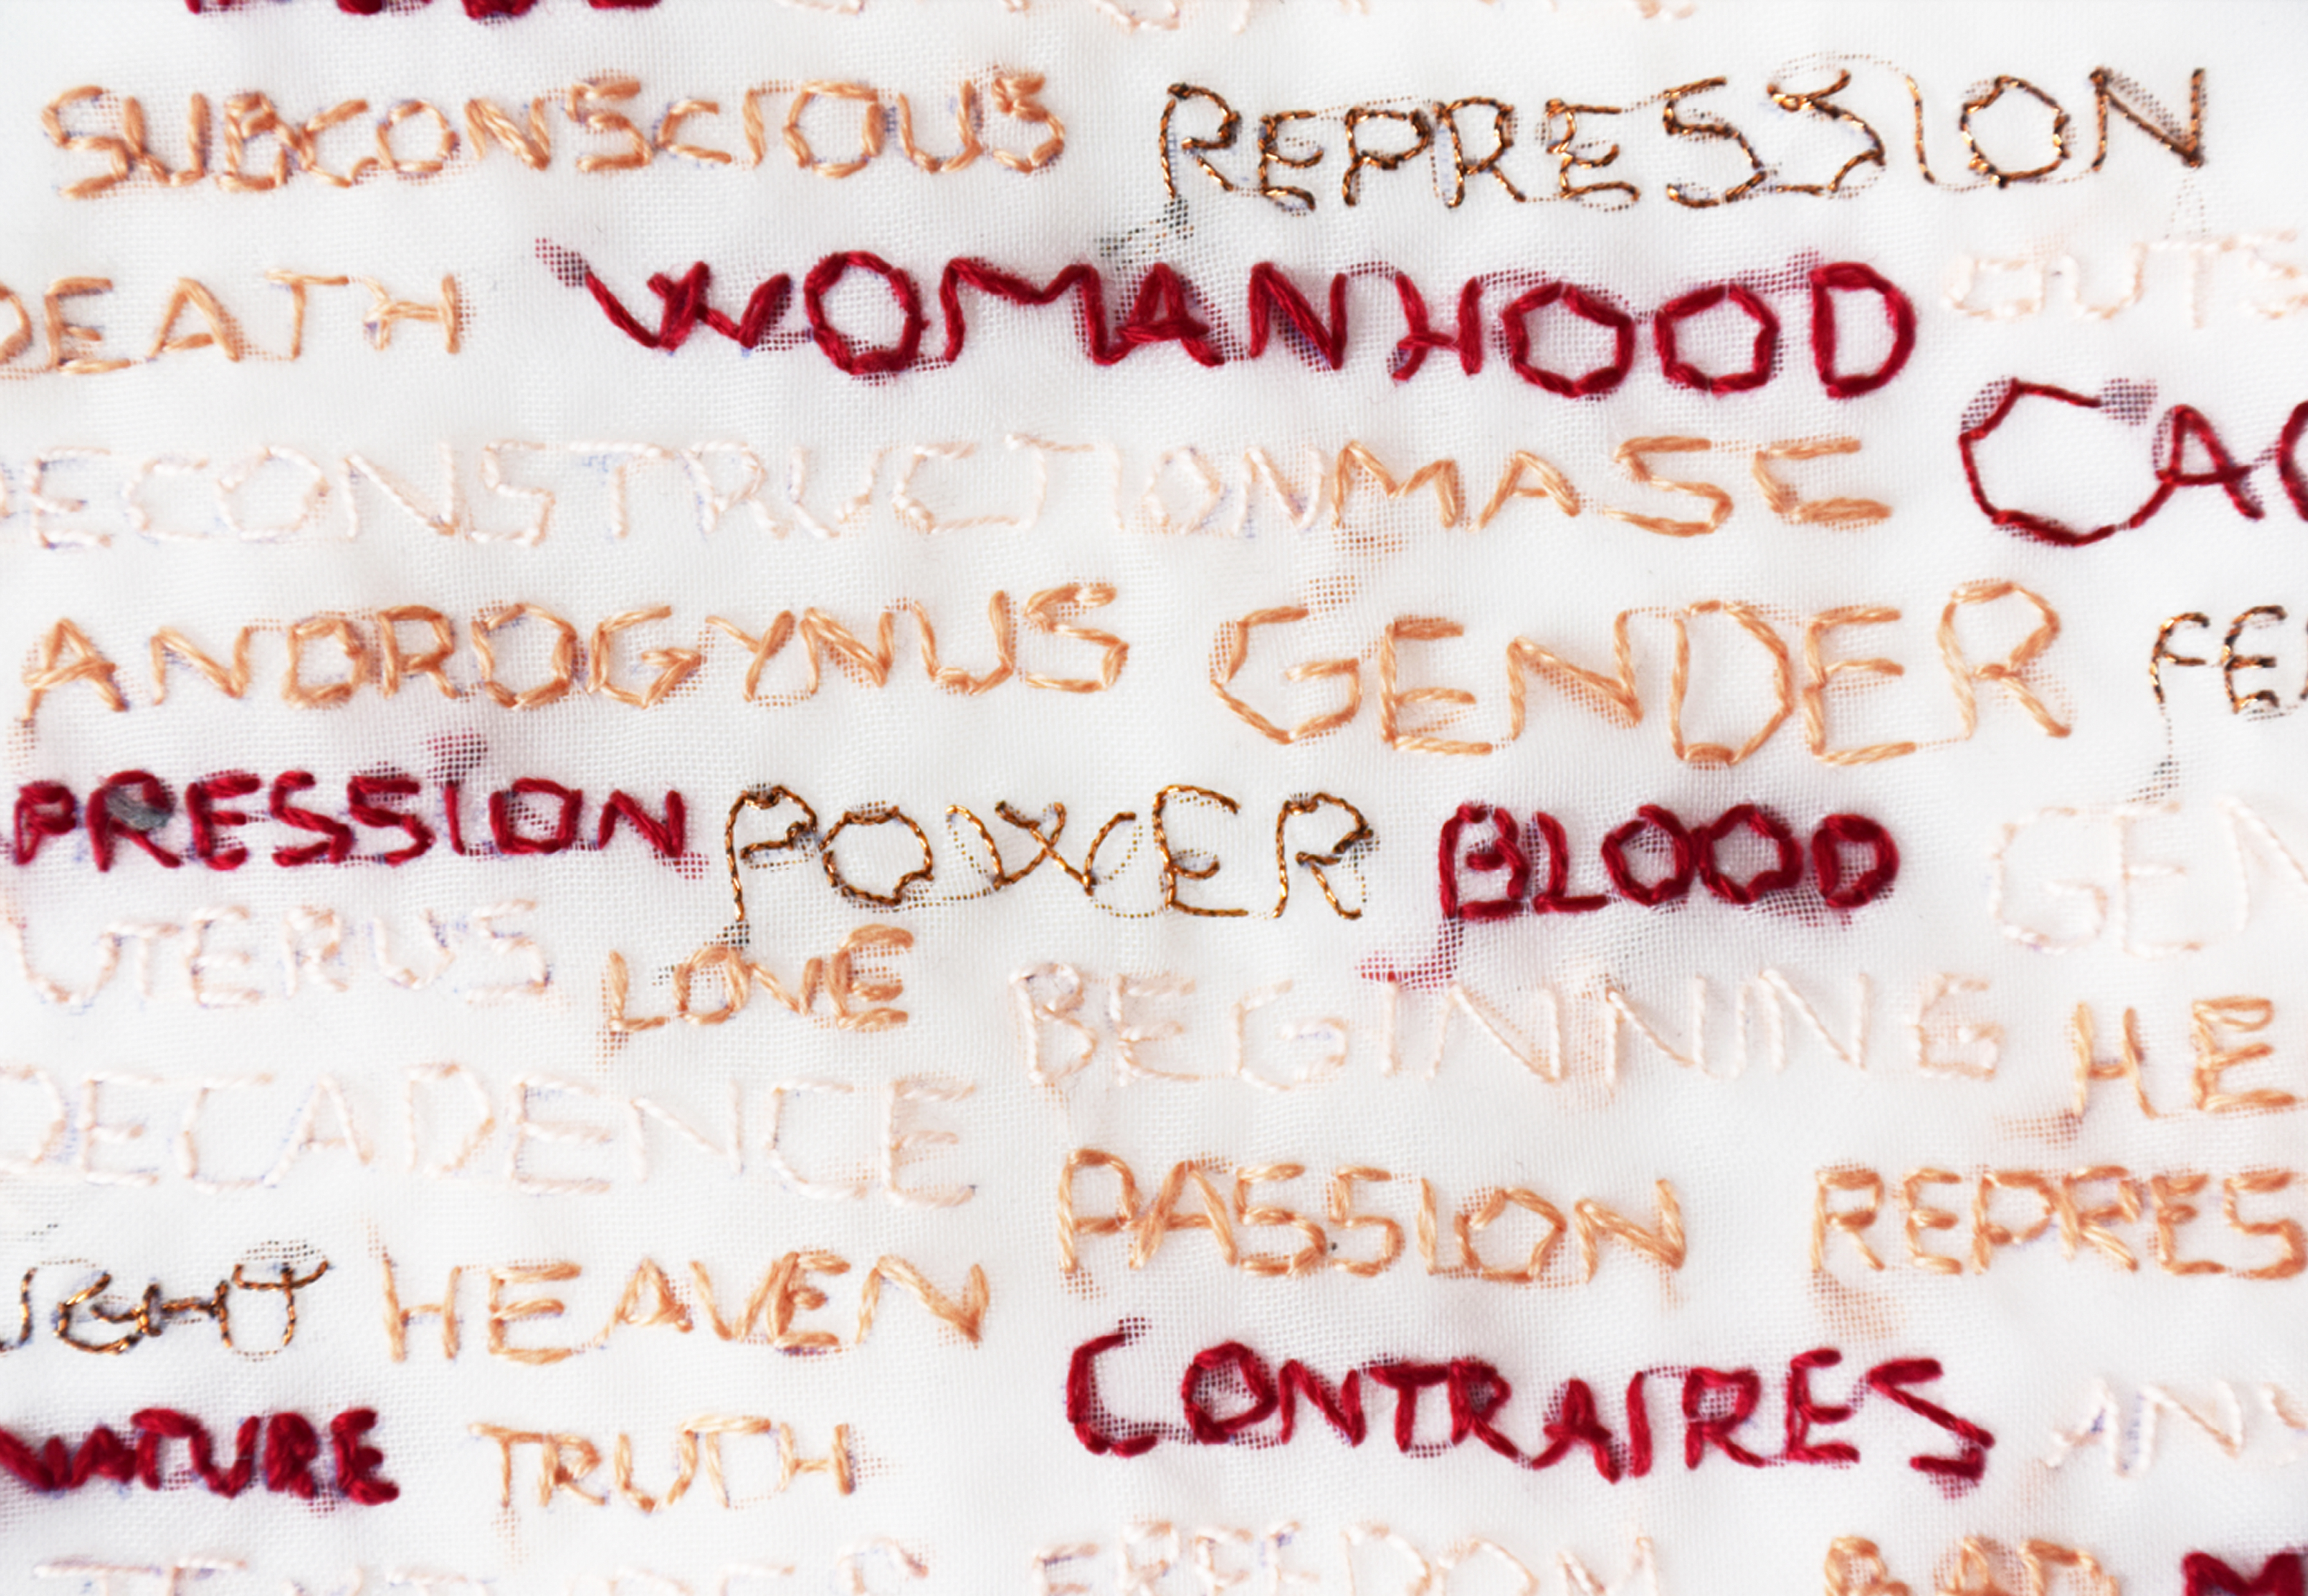 SUBCONSCIOUS REPRESSION
DEATH WOMANHOOD GUTS
DECONSTRUCTION MASE CAG
ANDROGYNUS GENDER FE
PRESSION POWER BLOOD GEN
UTERUS LOVE BEGINNING HE
DECADENCE PASSION REPRES
GHT HEAVEN CONTRAIRES
NATURE TRUTH AN
FREEDOM